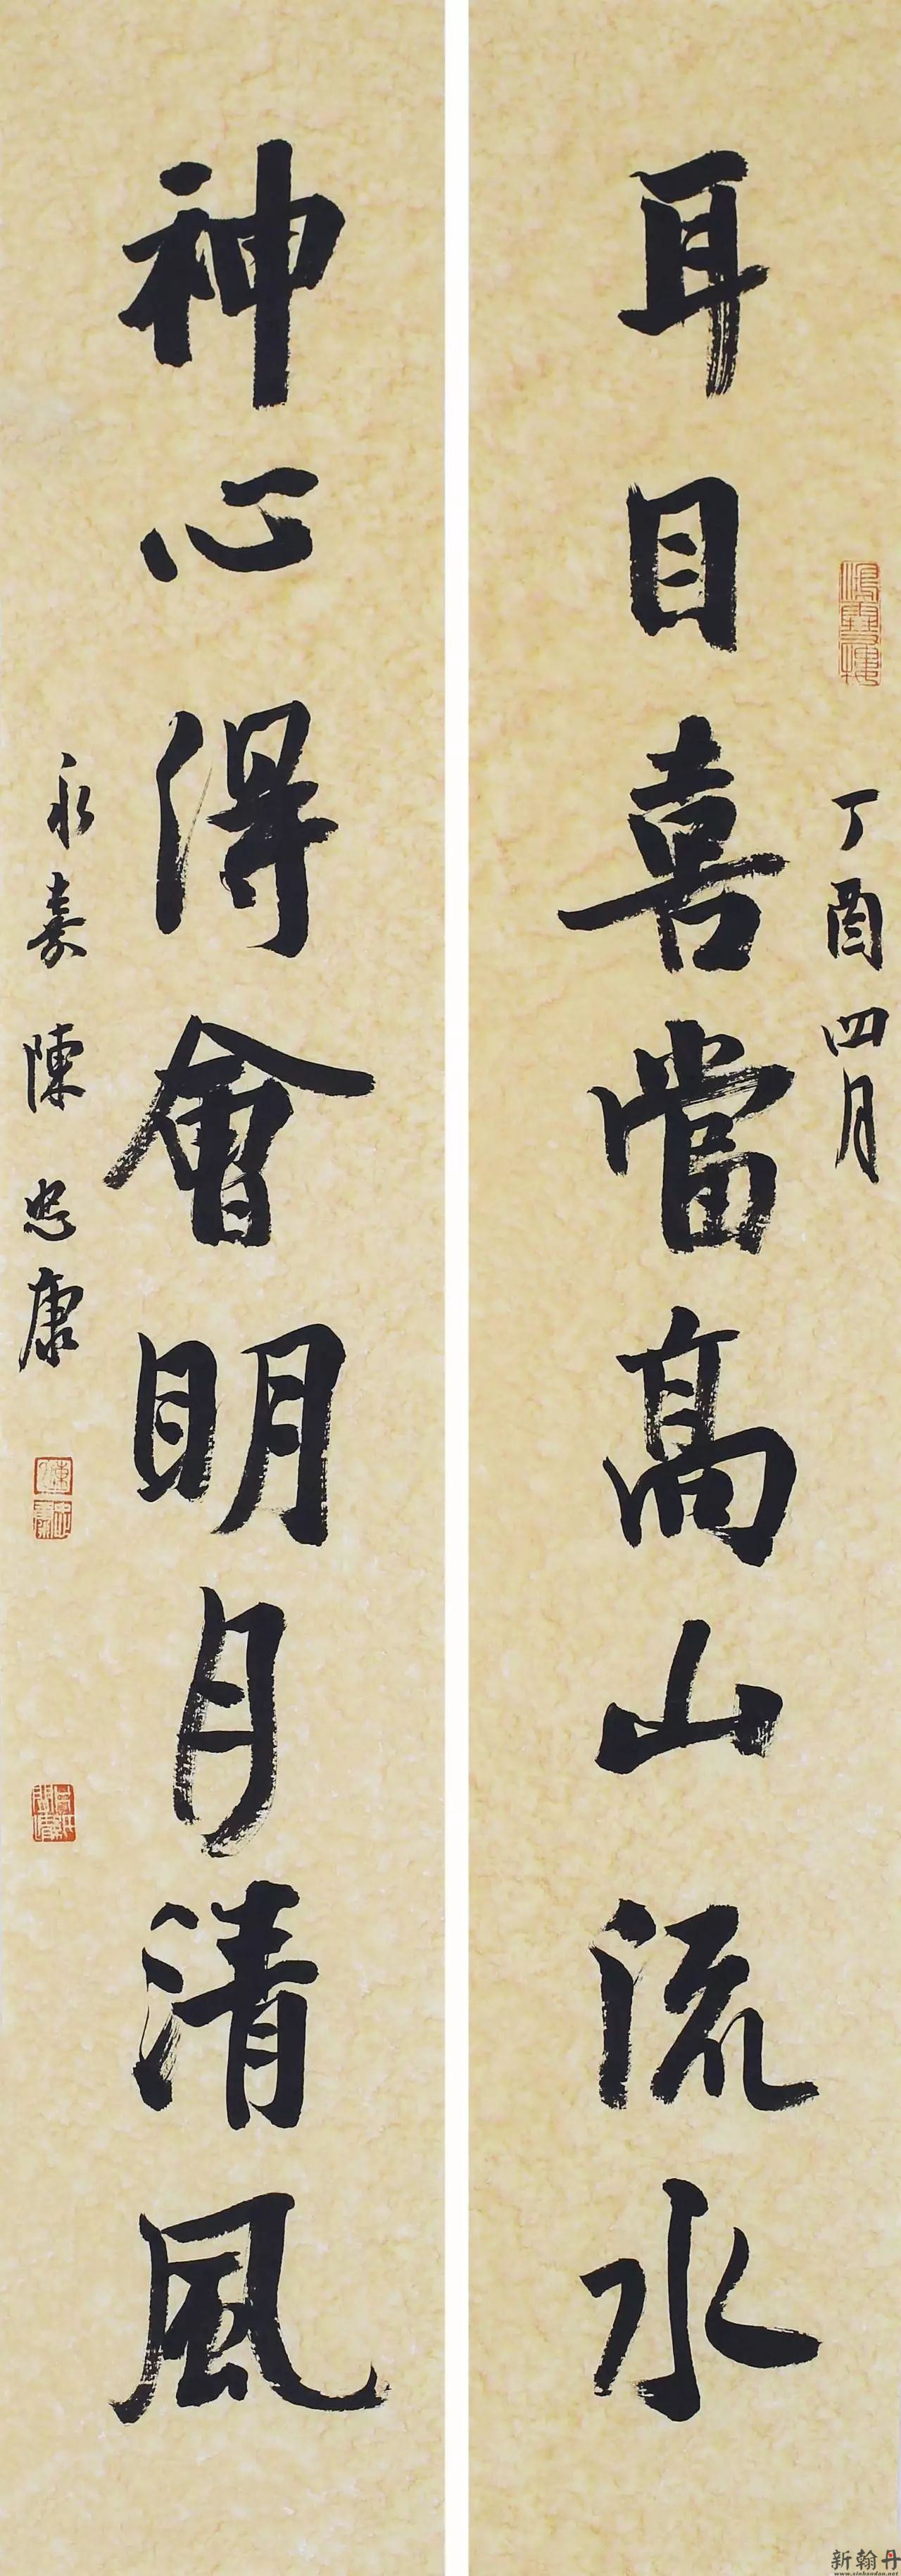 丁酉四月
耳目喜當高山流水
神心得會明月清風
永嘉陳忠康
新翰丹
www.xinhandan.net